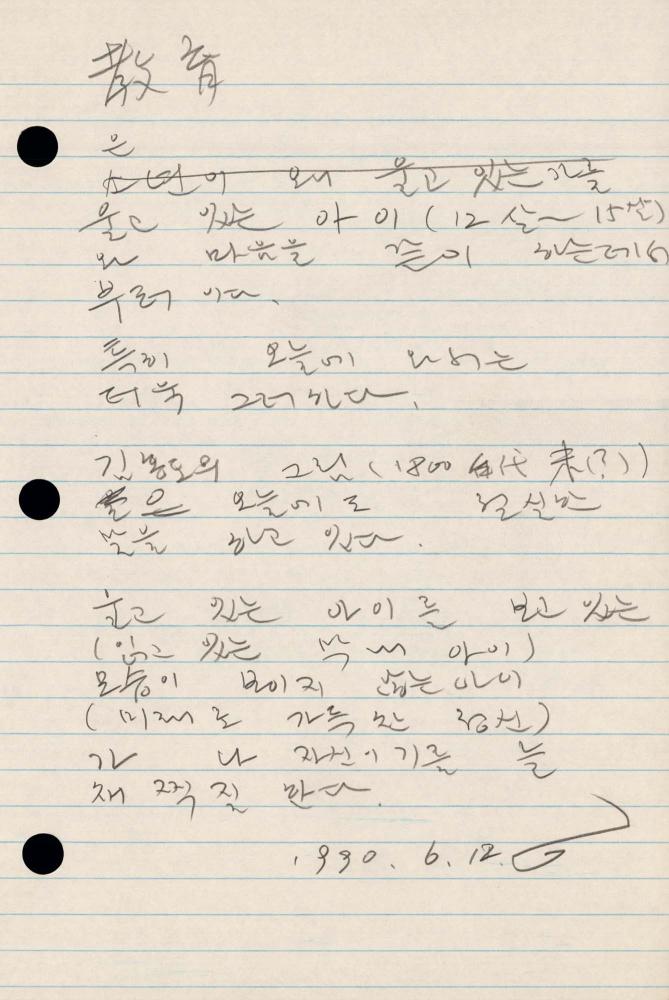 敎育
은
소년이 왜 울고 있는가를
울고 있는 아이 (12살~15살)
와 마음을 같이 하는데서
부터이다.
특히 오늘에 와서는
더욱 그러하다.
김홍도의 그림 (1800年代 末(?))
은 오늘에도 현실한
말을 하고 있다.
울고 있는 아이를 보고 있는
(읽고 있는 막내 아이)
모습이 보이지 않는 아이
(미래로 가득 찬 정신)
가 나 자신이기를 늘
채찍질 한다.
1990. 6. 12.